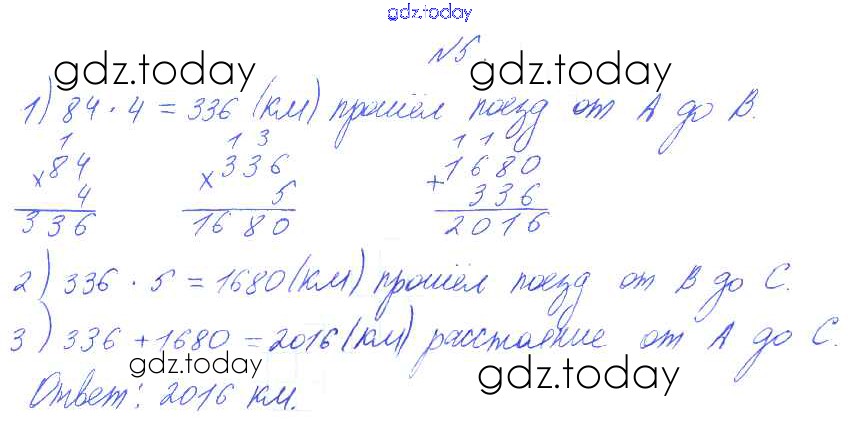 gdz.today
№5.
gdz.today gdz.today
1) 84 · 4 = 336 (км) прошёл поезд от А до В.
1 1 3 1 1
× 84 × 336 + 1680
4 5 336
336 1680 2016
2) 336 · 5 = 1680 (км) прошёл поезд от В до С.
3) 336 + 1680 = 2016 (км) расстояние от А до С.
gdz.today gdz.today
Ответ: 2016 км.